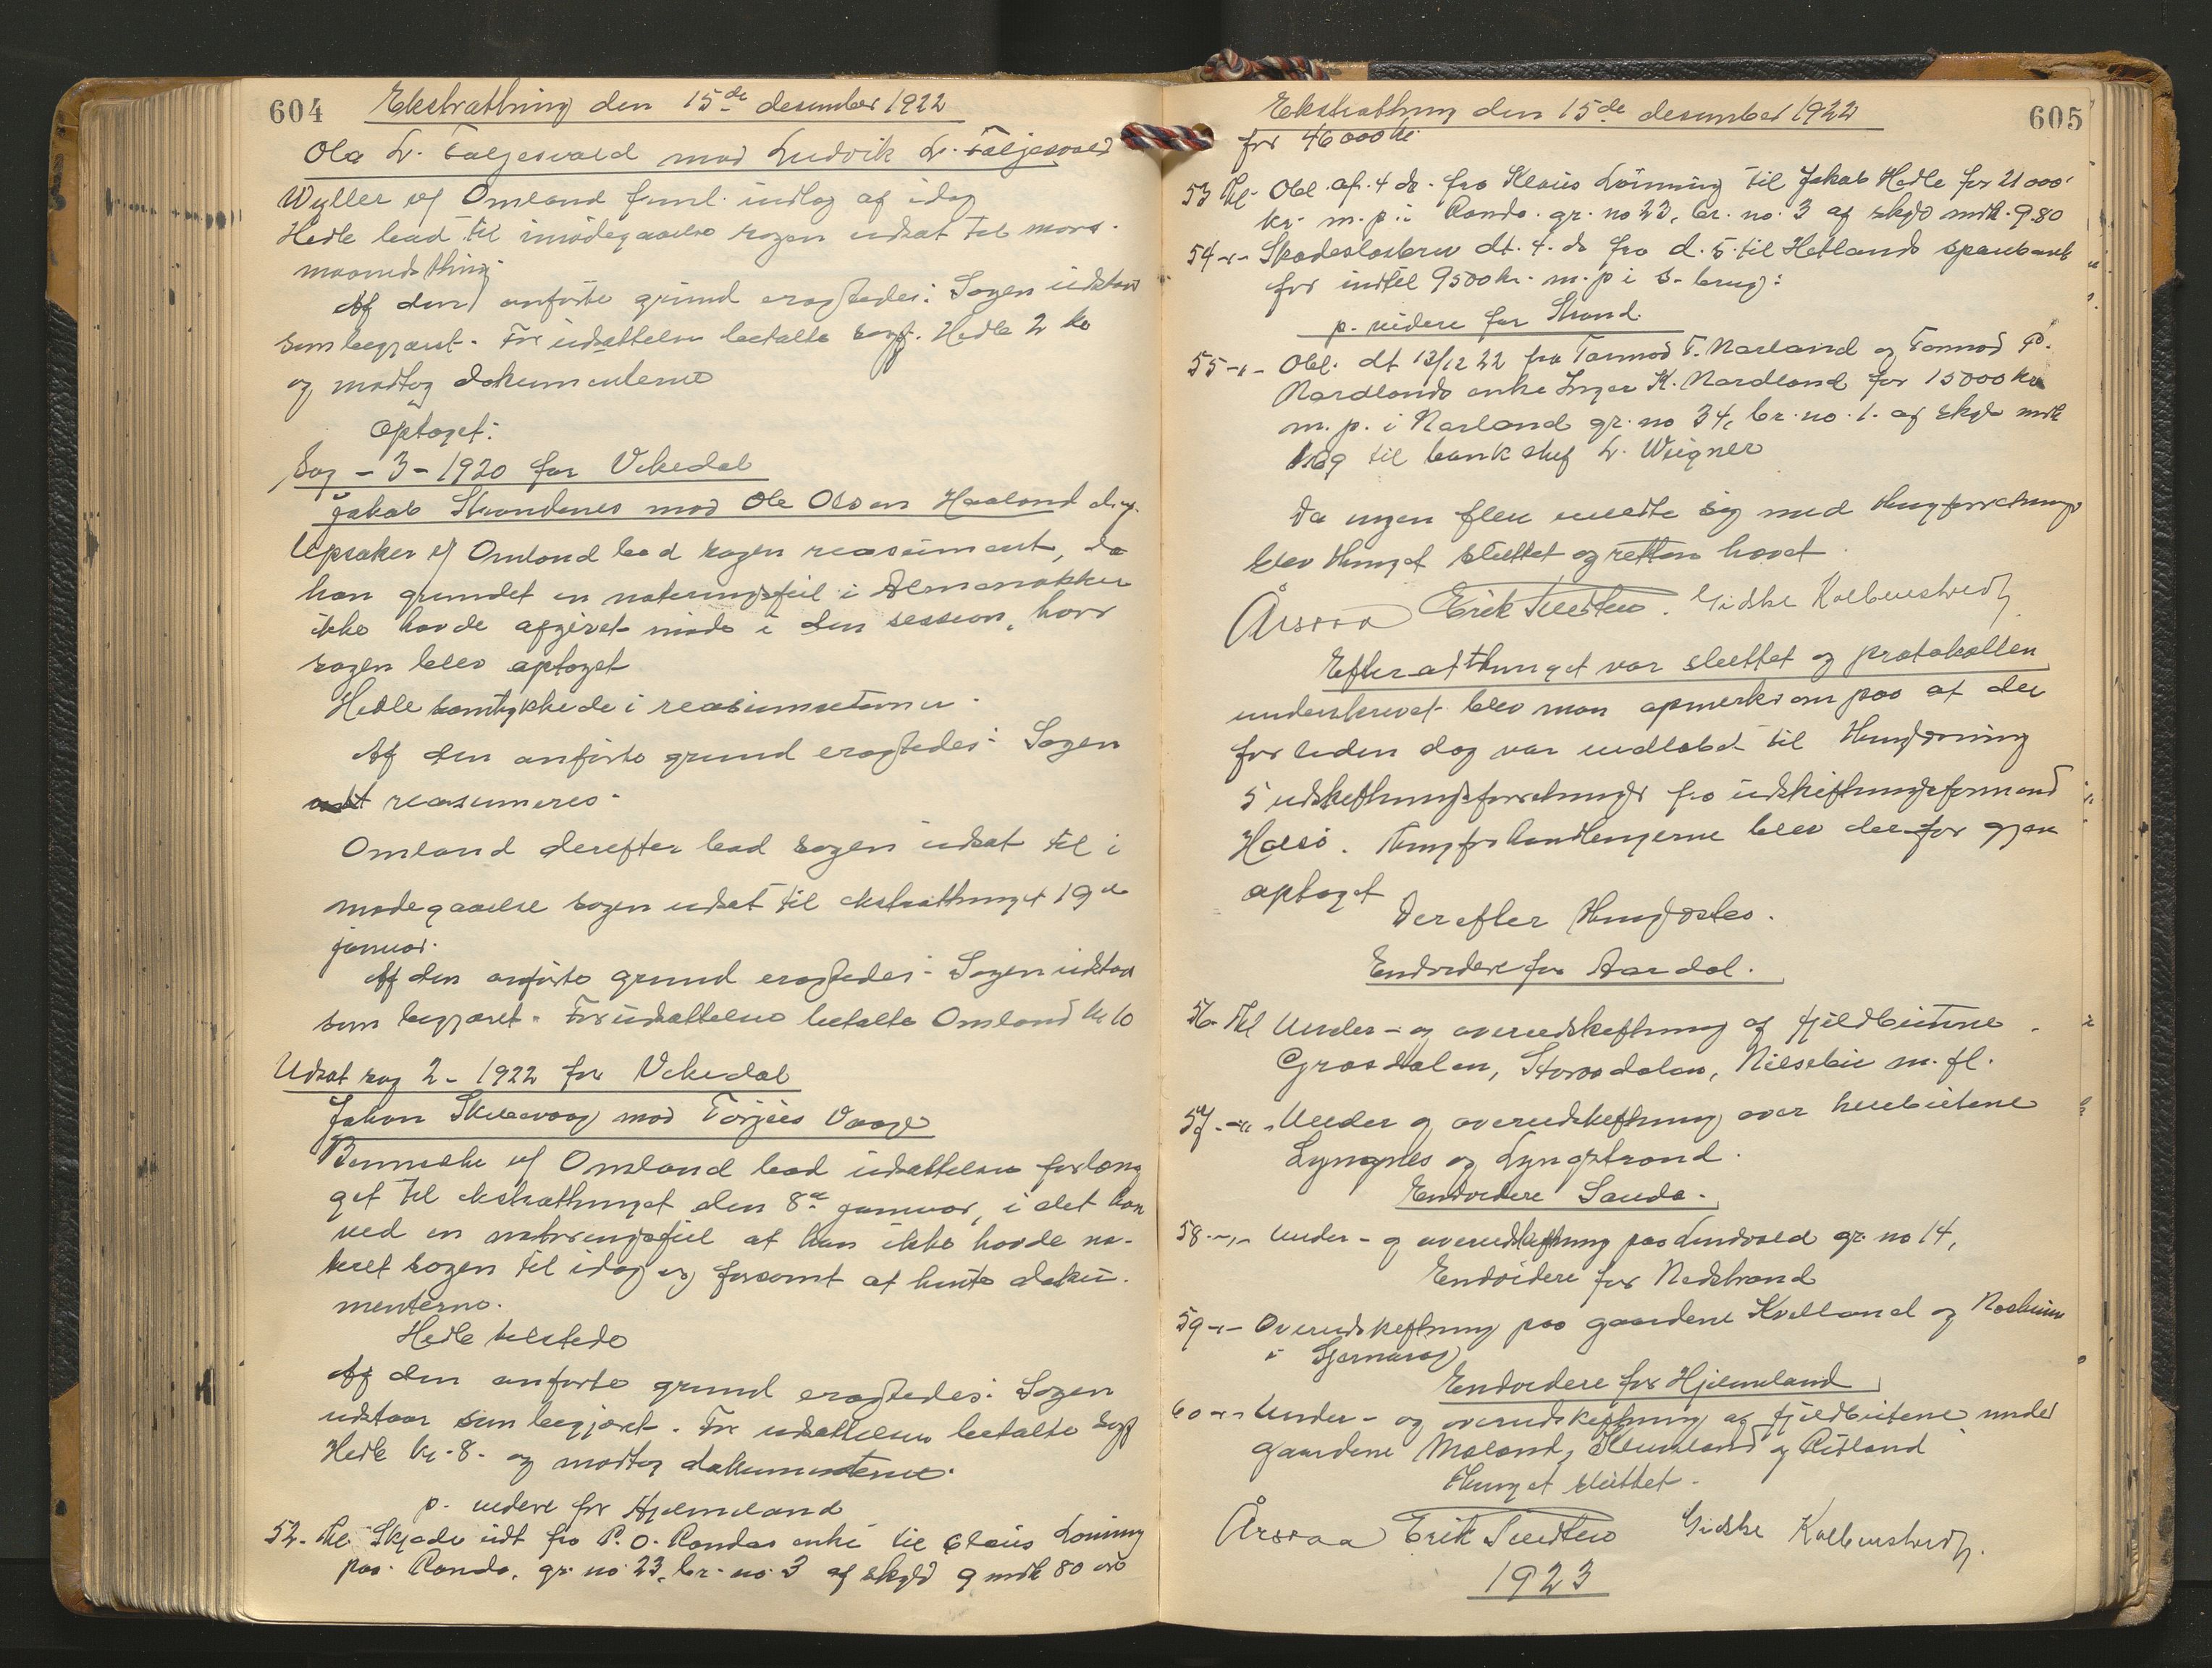 604 Ekstrathing den 15de desember 1922
Ola L. Taljesvold mod Ludvik L. Taljesvold
Wyller v/ Omland indlog af idag
Hedle bad til imødegaaelse sagen udsat til mars.
maanedsthing
Af den anførte grund eragtedes: Sagen udstaar
som begjæret. For udsættelsen betalte sagf. Hedle 2 kr
og modtog dokumenterne
Optaget:
Sag - 3 - 1920 for Vikedal
Jakob Strandenes mod Ole Olsen Haaland
v/ Omland bad sagen reassumert, da
han grundet en noteringsfeil i Almenakken
ikke havde afgivet møde i den session, hvor
sagen blev optaget
Hedle samtykkede i reassumtionen.
Af den anførte grund eragtedes: Sagen
reasumeres.
Omland derefter bad sagen udsat til i
mødegaaelse sagen udsat til ekstrathinget 19de
januar.
Af den anførte grund eragtedes: Sagen udstaar
som begjæret. For udsættelsen betalte Omland kr 10
Udsat sag 2 - 1922 for Vikedal
Jakon mod Torjus Vaage
v/ Omland bad udsættelsen forlæng
get til ekstrathinget den 8de januar, i det han
ved en noteringsfeil at han ikke havde no-
teret sagen til idag og forsømt at hente doku-
menterne.
Hedle tilstede
Af den anførte grund eragtedes: Sagen
udstaar som begjæret. For udsættelsen betalte sagf
Hedle kr. 8. og modtog dokumenterne.
p. videre for Hjelmeland
52. thl. Skjøde udt fra P. O. Randas enke til Claus Lønning
paa Randa, gr. no 23, br. no 3 af skyld 9 mrk 80 øre
Ekstrathing den 15de desember 1922 605
for 46000 kr.
53 thl. Obl. af. 4 ds. fra Klaus Lønning til Jakob Hedle for 21000.
kr. m. p. i Randa gr. no 23, br. no. 3 af skyld mrk. 9.80
54 -"- Skadesløsbrev dt. 4. ds fra d. s. til Hetlands sparebank
for indtil 9500 kr. m. p i s. brug:
p. videre for Strand.
55 -"- Obl. dt 13/12 22 fra Tormod T. Narland og Tormod
Nardlands enke Inger K. Nardland for 15000 kr
m. p. i Narland gr. no 34, br. no. 1. af skyld mrk
til bank chef L. Wiigner
Da ingen flere meldte sig med thingforretninger
blev thinget sluttet og retten hævet
Årsvaa Erik Gidske
Efter at thinget var sluttet og protokollen
underskrevet blev man opmerksom paa at der
forleden dag var indløbet til thinglæsning
5 udskiftningsforretninger fra udskiftningsformand
Halsø. Tingforhandlingerne blev derfor gjen
optaget
Derefter thinglæstes.
Endvidere for Aardal.
56. Thl Under- og overudskiftning af fjeldbeitene
Grasdalen, Storådalen, Nilsebu m. fl.
57. -"- Under og overudskiftning over
Lyngnes og Lyngstrand.
Endvidere Sauda.
58. -"- Under- og overudskiftning paa Lindvold gr. no 14,
Endvidere for Nedstrand
59 -"- Overudskiftning paa gaardene Kvilland og
i
Endvidere for Hjelmeland
60 -"- Under- og overudskiftning af fjeldbeitene under
gaardene Maland, og Ritland
Thinget sluttet.
Årsvaa Erik Gidske
1923